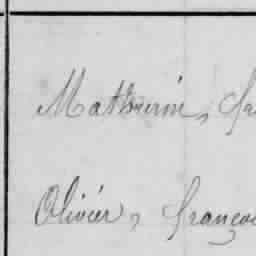 Mathurine, Fra
Olivier, Françoi